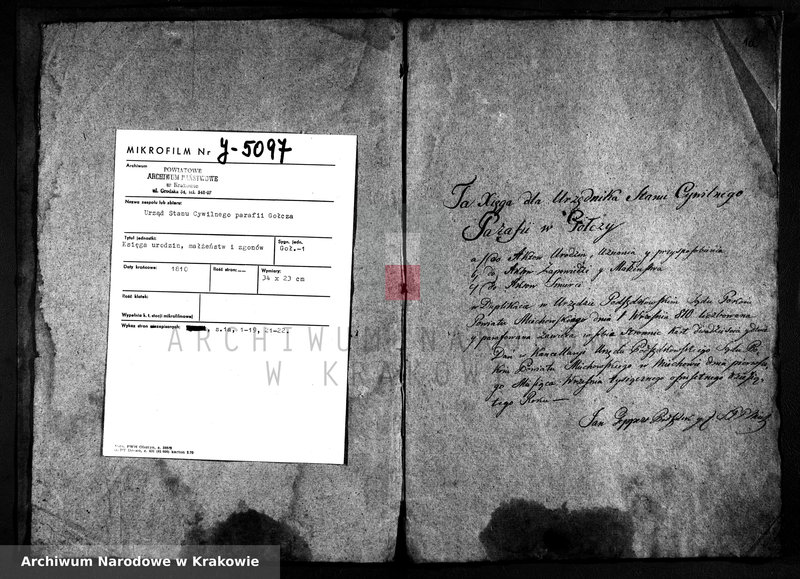 MIKROFILM Nr J-5097
Archiwum
POWIATOWE
ARCHIWUM PAŃSTWOWE
w Krakowie
ul. Grodzka 54, tel.
Nazwa zespołu lub zbioru:
Urząd Stanu Cywilnego parafii Gołcza
Tytuł jednostki:
Księga urodzin, małżeństw i zgonów
Sygn. jedn.
Goł.-1
Daty krańcowe: 1810
Ilość stron:
Wymiary:
34 x 23 cm
Ilość klatek:
Wypełnia k. t. stacji mikrofilmowej
Wykaz stron niezapisanych: s.1a, 1-19, 21-22.
Ta Xięga dla Urzędnika Stanu Cywilnego
Parafii w Gołczy
a) do Aktow Urodzin, Uznania y przysposobienia
b) do Aktow Zapowiedzi y Małżeństwa
c) do Aktow Smierci
w Duplikacie w Urzędzie Podsędkowskim Sądu Pokoiu
Powiatu Miechowskiego dnia 1 Września 810 liczbowana
y parafowana zawiera
Dan w Kancellaryi Urzędu Podsędkowskiego Sądu Po-
koiu Powiatu Miechowskiego w Miechowie dnia pierwsze-
go Miesiąca Września tysiącznego ośmsetnego dziesią-
tego Roku —
Jan
ARCHIWUM NA
W KRAKOW
Archiwum Narodowe w Krakowie